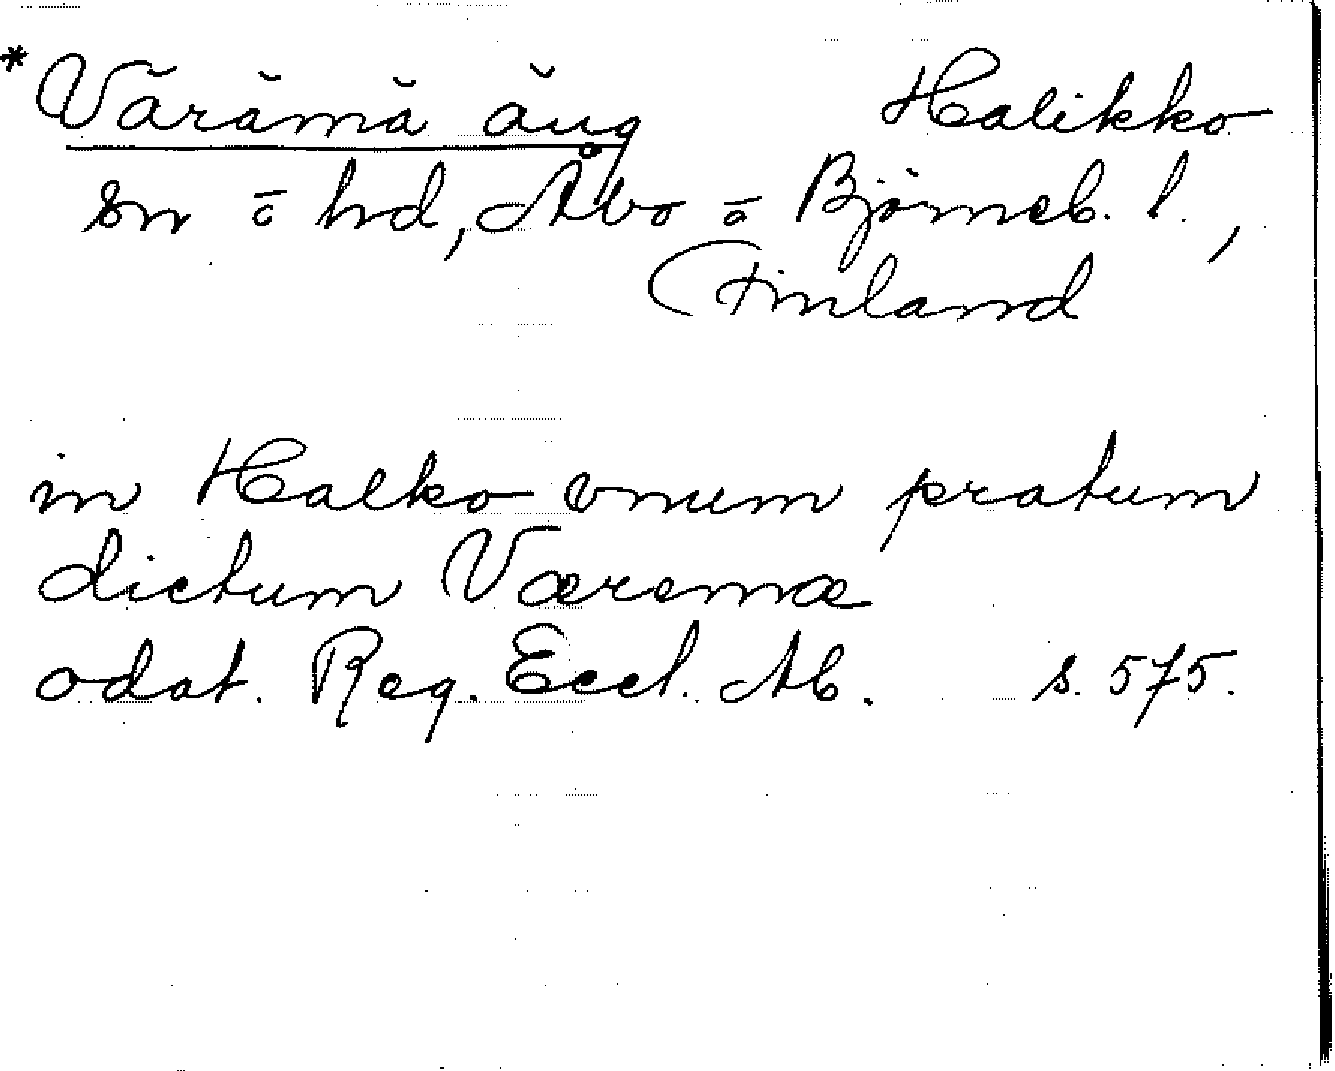 * Värämä äng Halikko
sn o hd, Åbo o Björneb. l.,
Finland
in Halko vnum pratum
dictum Væremæ
odat. Reg. Eccl. Ab. s. 575.